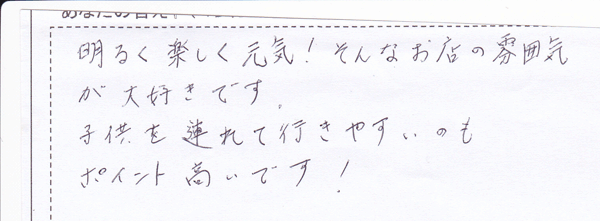 明るく楽しく元気！そんなお店の雰囲気
が大好きです。
子供を連れて行きやすいのも
ポイント高いです！